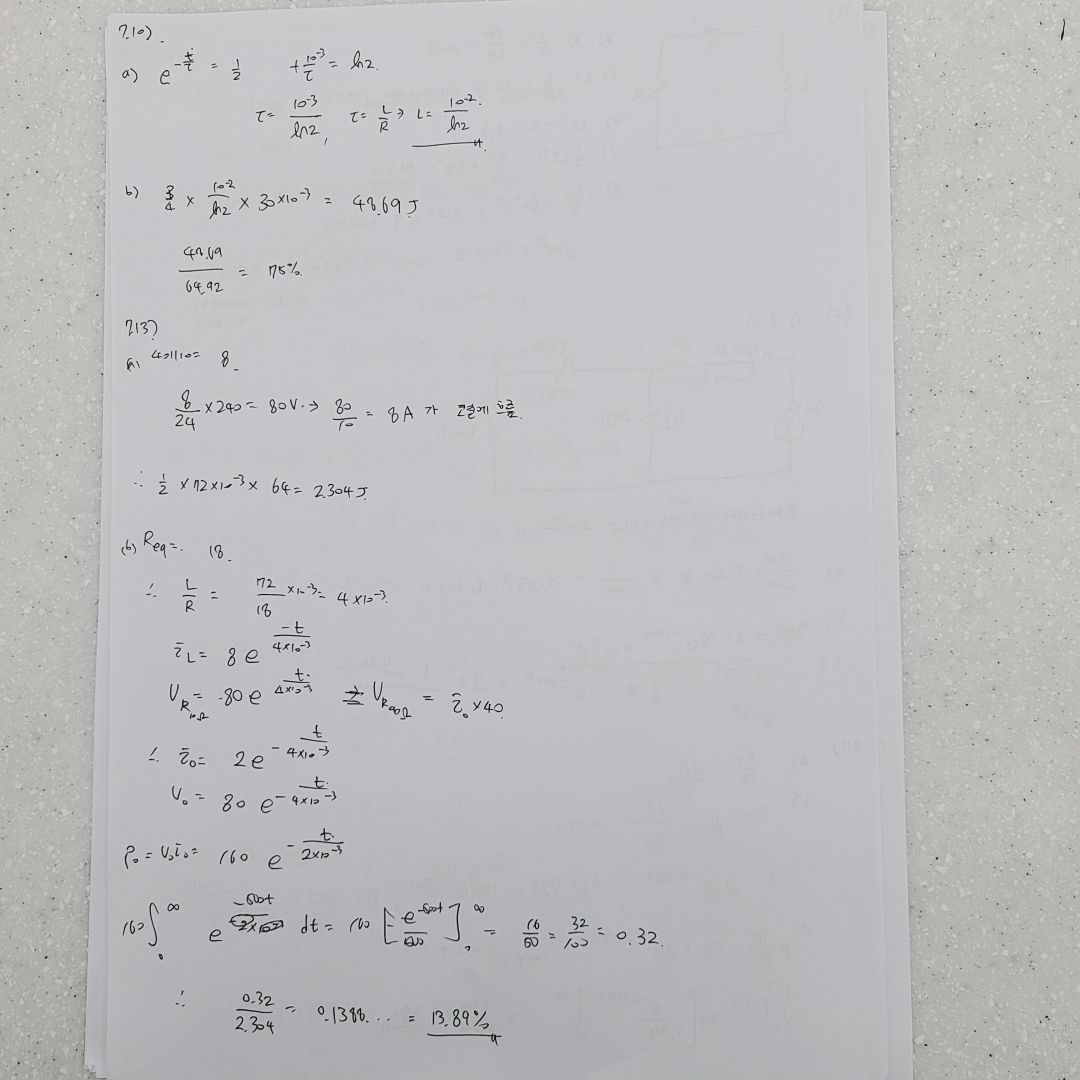 1
7.10)
a) e^{-t/τ} = 1/2   + 10⁻³/τ = ln2.
τ = 10⁻³/ln2,   τ = L/R → L = 10⁻²/ln2
b) 3/4 × 10⁻²/ln2 × 30×10⁻³ = 48.69 J
48.69/64.92 = 75%.
7.13)
(a) 40||10 = 8.
8/24 × 240 = 80V → 80/10 = 8A 가 흐름.
∴ 1/2 × 72×10⁻³ × 64 = 2.304 J.
(b) Req = 18.
∴ L/R = 72/18 ×10⁻³ = 4×10⁻³.
i_L = 8e^{-t/4×10⁻³}
V_{R10Ω} = -80e^{-t/4×10⁻³} = V_{R40Ω} = i₀ × 40.
∴ i₀ = 2e^{-t/4×10⁻³}
V₀ = 80e^{-t/4×10⁻³}
P₀ = V₀i₀ = 160 e^{-t/2×10⁻³}
160∫₀^∞ e^{-500t} dt = 160 [e^{-500t}/500]₀^∞ = 16/50 = 32/100 = 0.32.
∴ 0.32/2.304 = 0.1388... = 13.89%